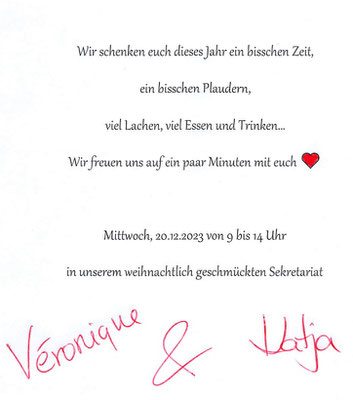 Wir schenken euch dieses Jahr ein bisschen Zeit,
ein bisschen Plaudern,
viel Lachen, viel Essen und Trinken...
Wir freuen uns auf ein paar Minuten mit euch ❤
Mittwoch, 20.12.2023 von 9 bis 14 Uhr
in unserem weihnachtlich geschmückten Sekretariat
Véronique & Katja